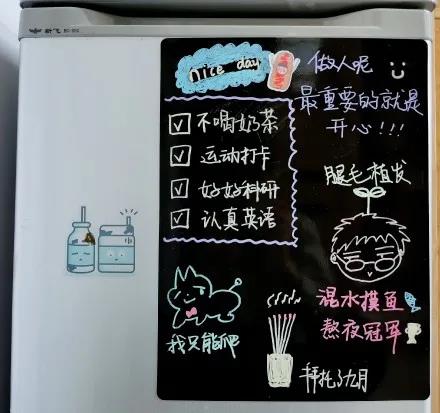 新飞
nice day
做人呢
最重要的就是
开心!!!
不喝奶茶
运动打卡
好好科研
认真英语
腿毛植发
混水摸鱼
熬夜冠军
我只能爬
拜托了九月